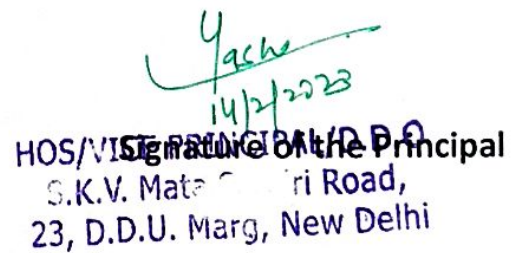 14/2/2023
HOS/VICE PRINCIPAL/D.D.O
Signature of the Principal
S.K.V. Mata ri Road,
23, D.D.U. Marg, New Delhi